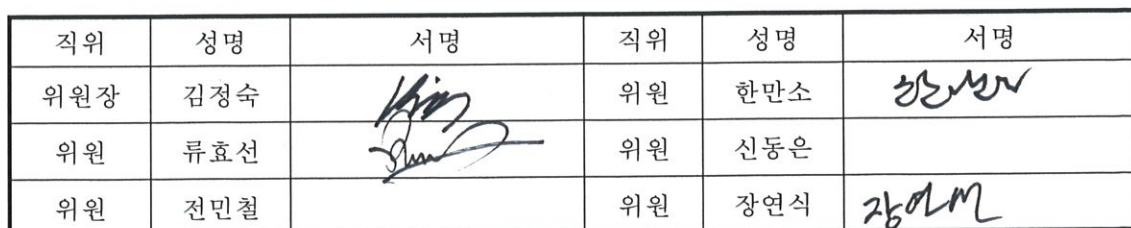 직위 성명 서명 직위 성명 서명
위원장 김정숙 위원 한만소
위원 류효선 위원 신동은
위원 전민철 위원 장연식